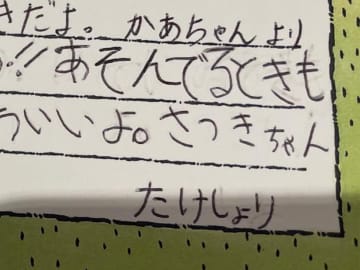 きだよ。かあちゃんより
!!あそんでるときも
ういいよ。さつきちゃん
たけしより